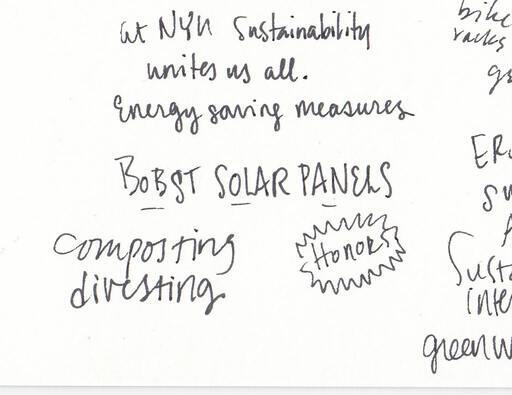 at NYU Sustainability
unites us all.
Energy saving measures
BOBST SOLAR PANELS
composting
divesting
HONORS
bike
racks